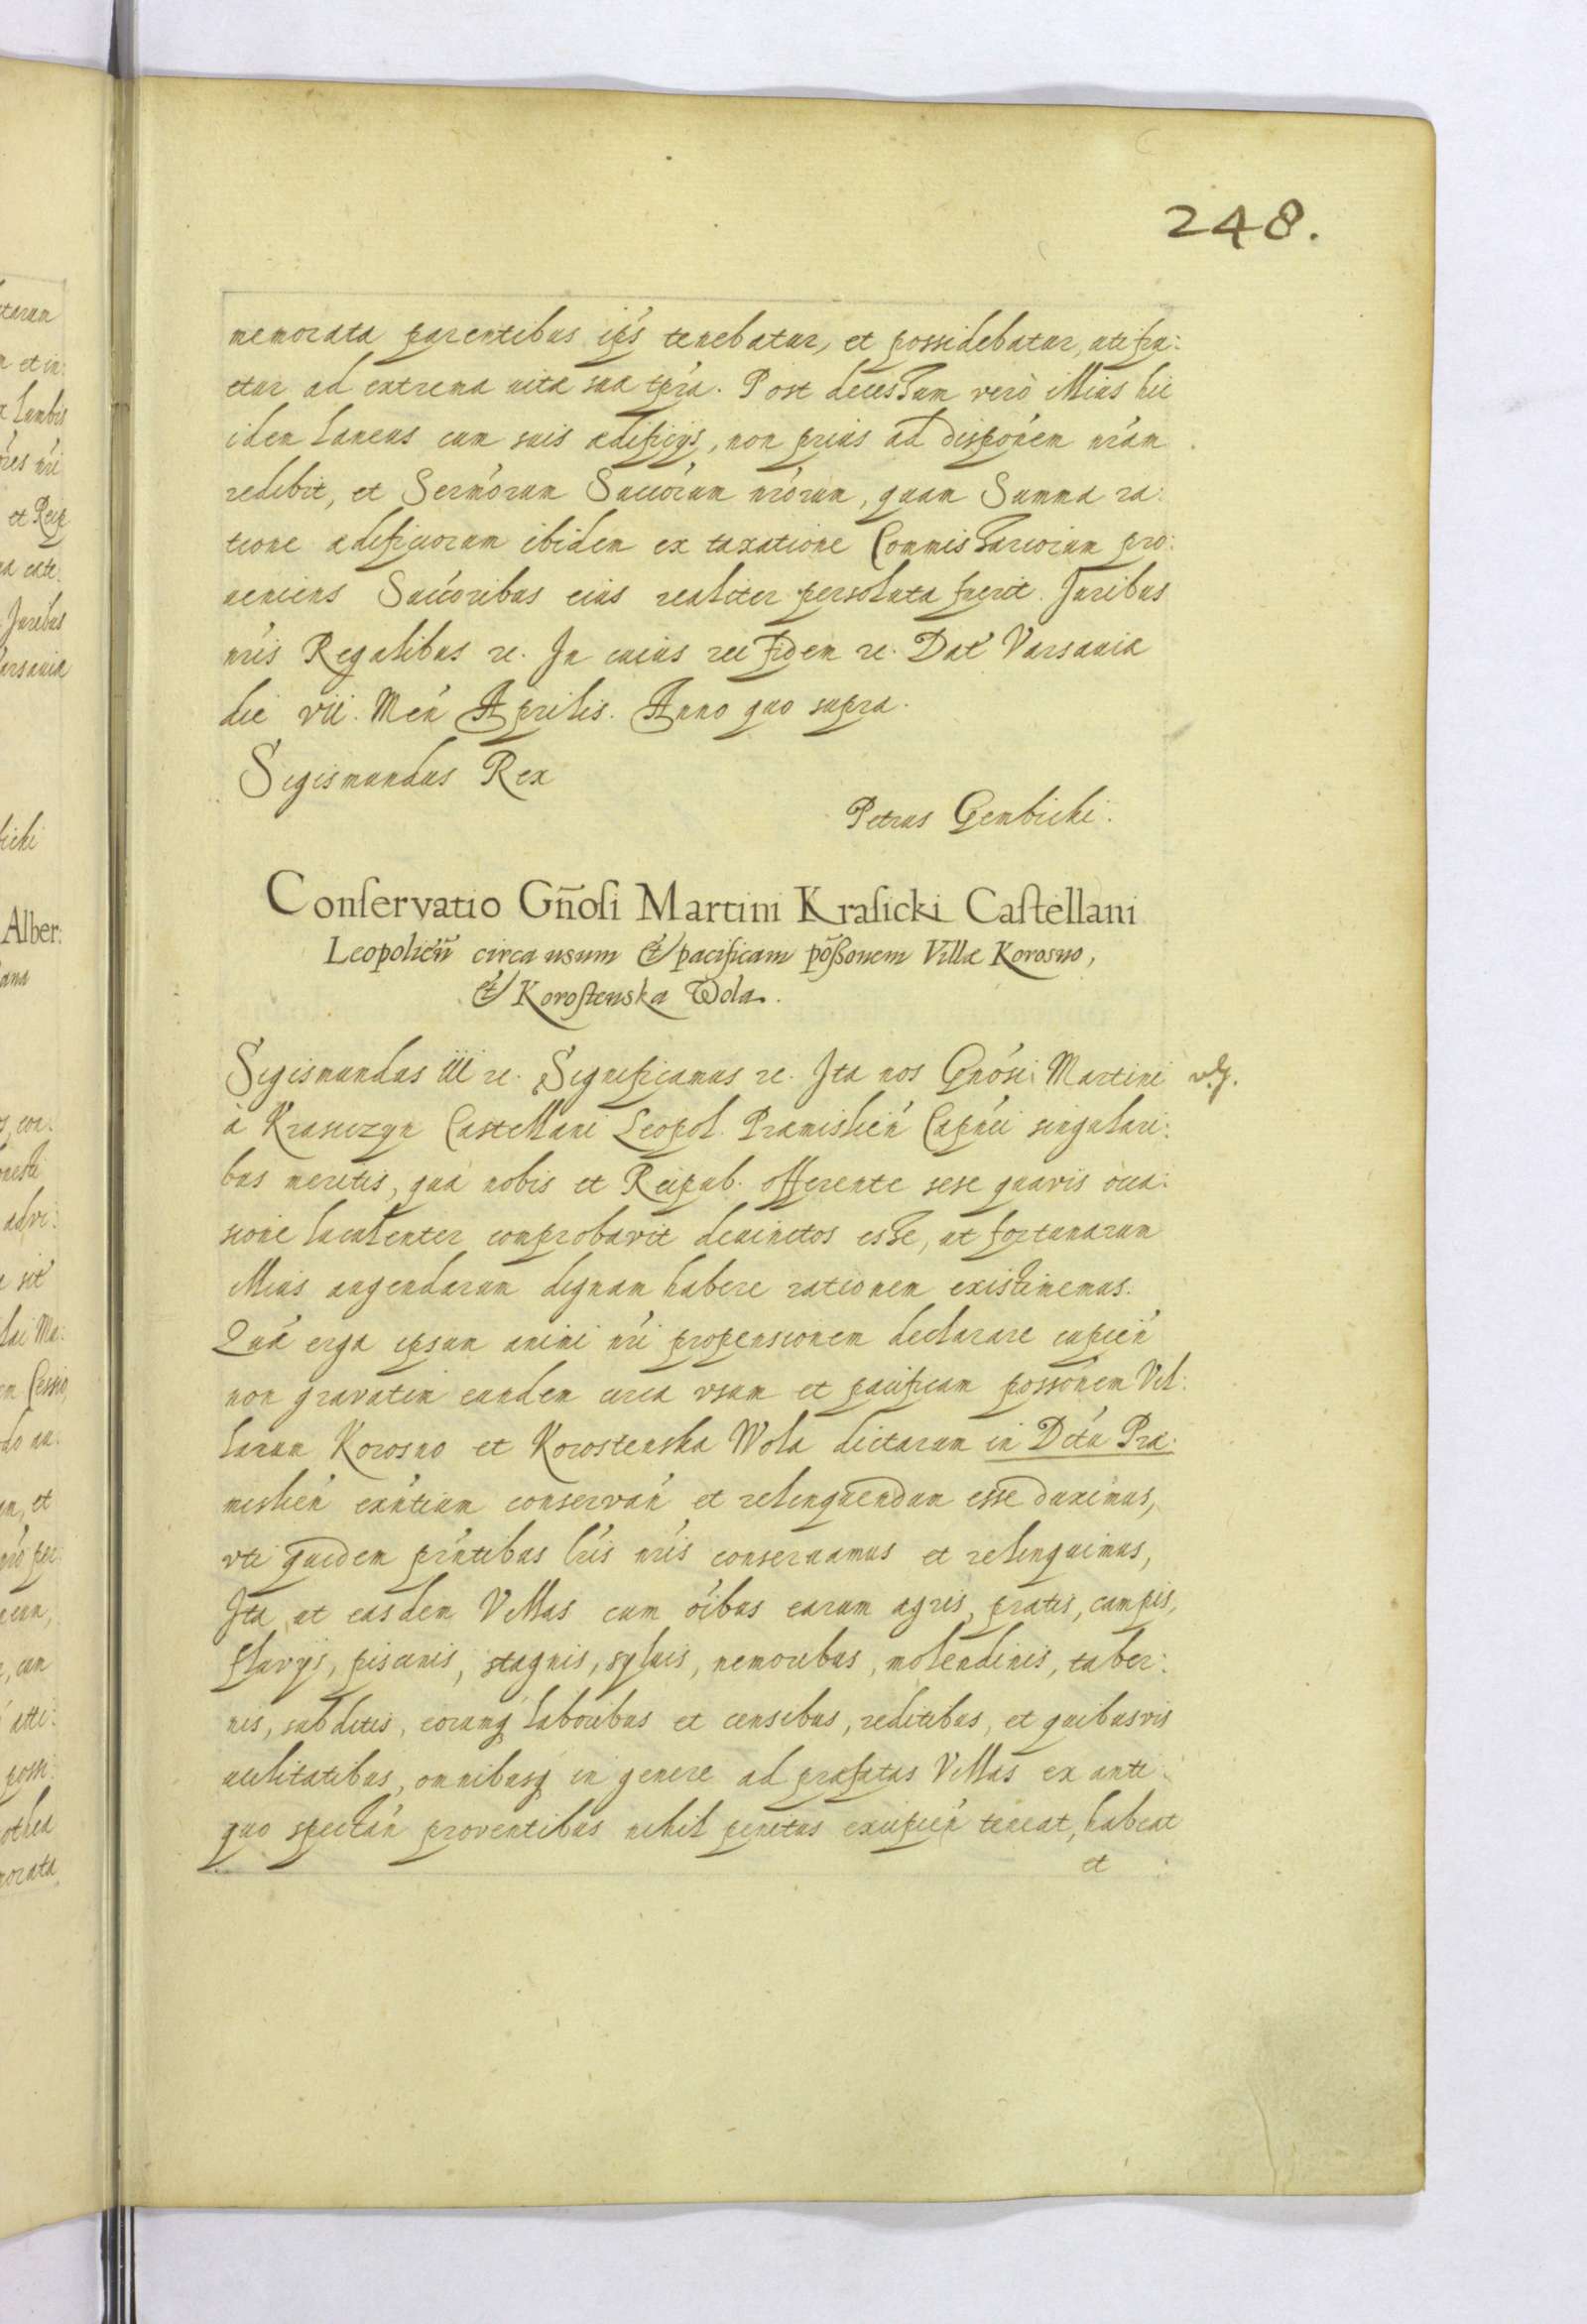 248.
memorata parentibus ip̃s tenebatur, et possidebatur, utifru:
etur ad extrema uitæ suæ tp̃ra. Post decessum verò illius hic
idem Laneus cum suis ædificijs, non prius ad dispõnem nr̃am
redibit, et Serm̃orum Succõrum nr̃orum, quam Summa ra:
tione ædificiorum ibidem ex taxatione Commissariorum pro:
ueniens Succ̃oribus eius realiter persoluta fuerit. Juribus
nr̃is Regalibus etc. In cuius rei fidem etc. Dat̃ Varsauiæ
die vii. Men̄ Aprilis. Anno quo supra.
Sigismundus Rex
Petrus Gembicki.
Conſervatio Gñoſi Martini Kraſicki Caſtellani
Leopolieñ circa usum & pacificam põßonem Villæ Korosno,
& Koroſtenska Wola.
Sigismundus iii etc. Significamus etc. Ita nos Gñosi Martini
à Krasiczyn Castellani Leopol. Præmislień Capñei singulari:
bus meritis, quæ nobis et Reipub. offerente sese quavis occa:
sione luculenter comprobavit deuinctos esse, ut fortunarum
illius augendarum dignam habere rationem existimemus.
Quã erga ipsum animi nr̃i propensionem declarare cupień
non gravatim eundem circa vsum et pacificam possõnem Vil:
larum Korosno et Korostenska Wola dictarum in Dctũ Præ:
mislień exñtium conservań et relinquendum esse duximus,
vti quidem pr̃ntibus lr̃is nr̃is conseruamus et relinquimus,
Ita, ut easdem Villas cum õibus earum agris, pratis, campis,
fluvijs, piscinis, stagnis, syluis, nemoribus, molendinis, taber:
nis, subditis, eorumq̃ laboribus et censibus, reditibus, et quibusvis
utilitatibus, omnibusq̃ in genere ad præfatas Villas ex anti:
quo spectań proventibus nihil penitus excipień teneat, habeat
et